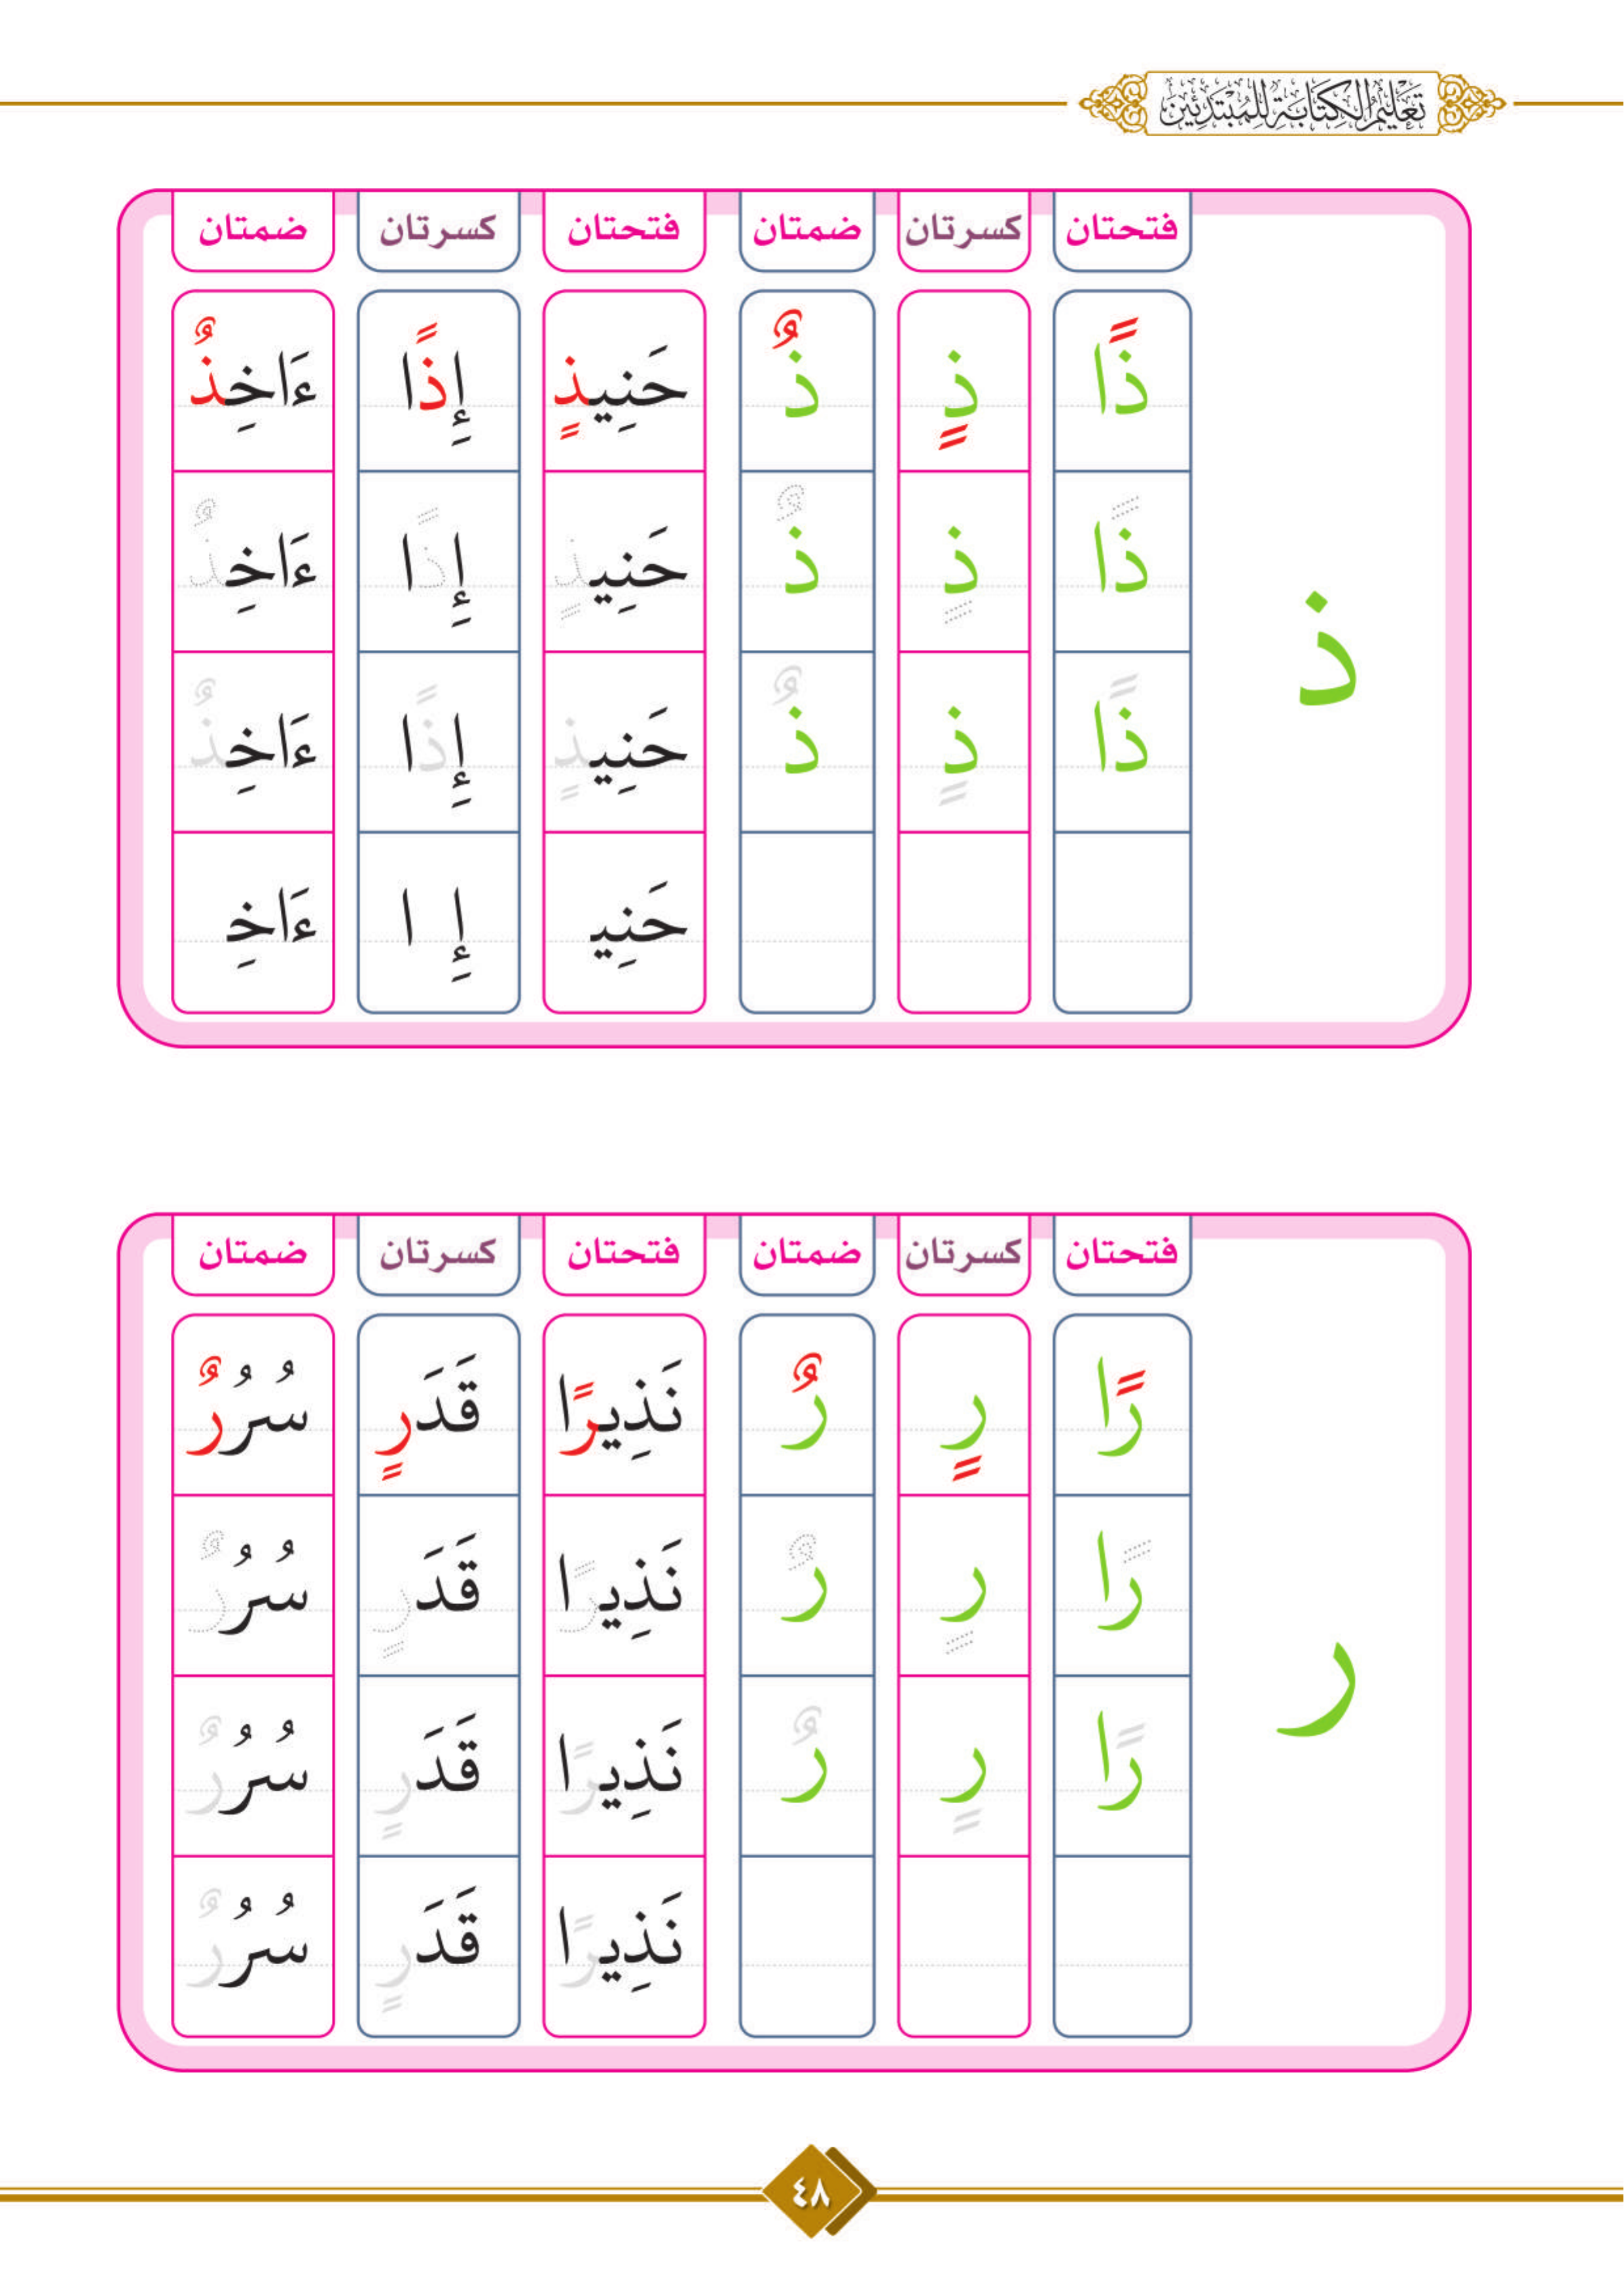 تَعْلِيمُ الْكِتَابَةِ لِلْمُبْتَدِئِينَ
فتحتان كسرتان ضمتان فتحتان كسرتان ضمتان
ذًا ذٍ ذٌ حَنِيذٍ إِذًا ءَاخِذٌ
ذ
ذًا ذٍ ذٌ حَنِيذٍ إِذًا ءَاخِذٌ
ذًا ذٍ ذٌ حَنِيذٍ إِذًا ءَاخِذٌ
حَنِيـ إِ ا ءَاخِـ
فتحتان كسرتان ضمتان فتحتان كسرتان ضمتان
رًا رٍ رٌ نَذِيرًا قَدَرٍ سُرُرٌ
رًا رٍ رٌ نَذِيرًا قَدَرٍ سُرُرٌ
ر
رًا رٍ رٌ نَذِيرًا قَدَرٍ سُرُرٌ
نَذِيرًا قَدَرٍ سُرُرٌ
٤٨